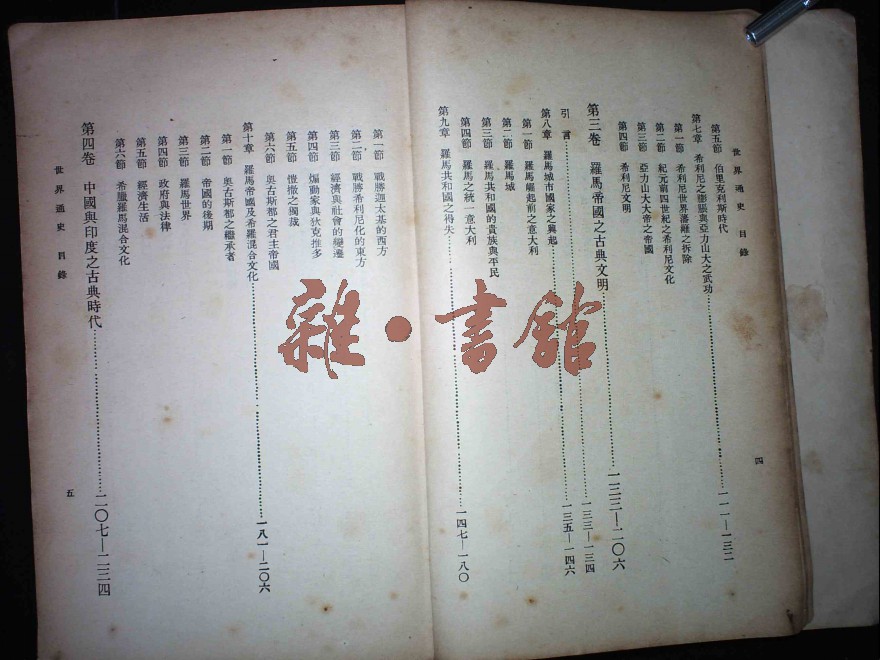 世界通史　目錄
第五節　伯里克利斯時代
第七章　希利尼之膨脹與亞力山大之武功……一一一—一三二
第一節　希利尼世界藩籬之拆除
第二節　紀元前四世紀之希利尼文化
第三節　亞力山大大帝之帝國
第四節　希利尼文明
第三卷　羅馬帝國之古典文明……一三三—二〇六
引言……一三三—一三四
第八章　羅馬城市國家之興起……一三五—一四六
第一節　羅馬崛起前之意大利
第二節　羅馬城
第三節　羅馬共和國的貴族與平民
第四節　羅馬之統一意大利
第九章　羅馬共和國之得失……一四七—一八〇
四
第一節　戰勝迦太基的西方
第二節　戰勝希利尼化的東方
第三節　經濟與社會的變遷
第四節　煽動家與狄克推多
第五節　愷撒之獨裁
第六節　奧古斯都之君主帝國
第十章　羅馬帝國及希羅混合文化……一八一—二〇六
第一節　奧古斯都之繼承者
第二節　帝國的後期
第三節　羅馬世界
第四節　政府與法律
第五節　經濟生活
第六節　希臘羅馬混合文化
第四卷　中國與印度之古典時代……二〇七—二三四
世界通史　目錄
五
雜·書館